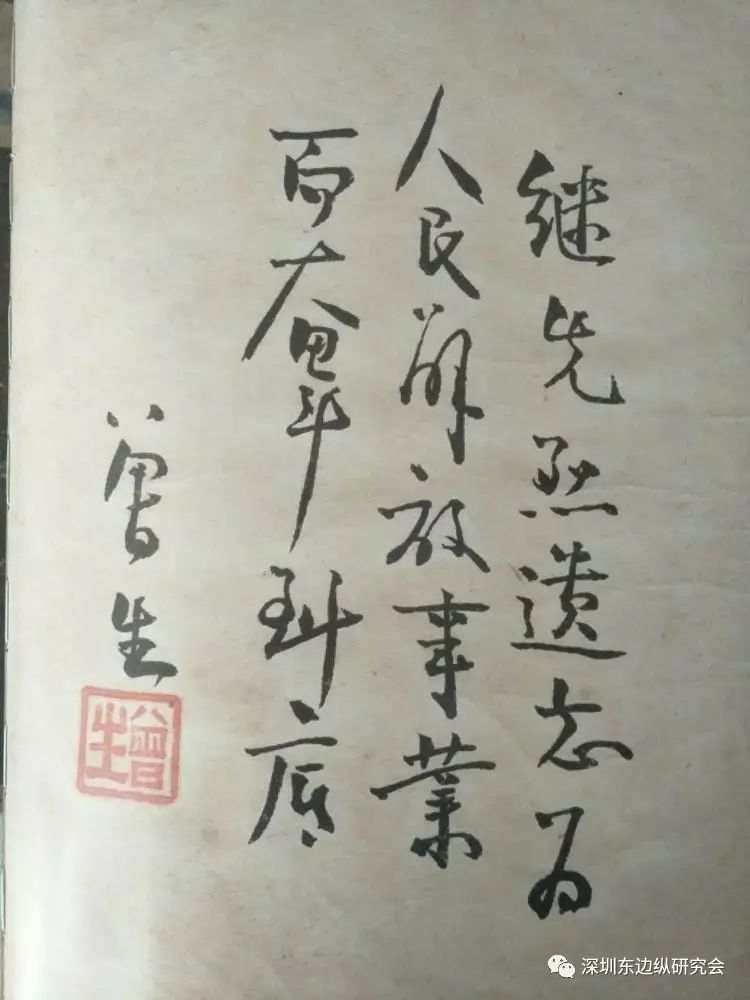 继先烈遗志为
人民解放事业
而奋斗到底
曾生
曾生
深圳东边纵研究会